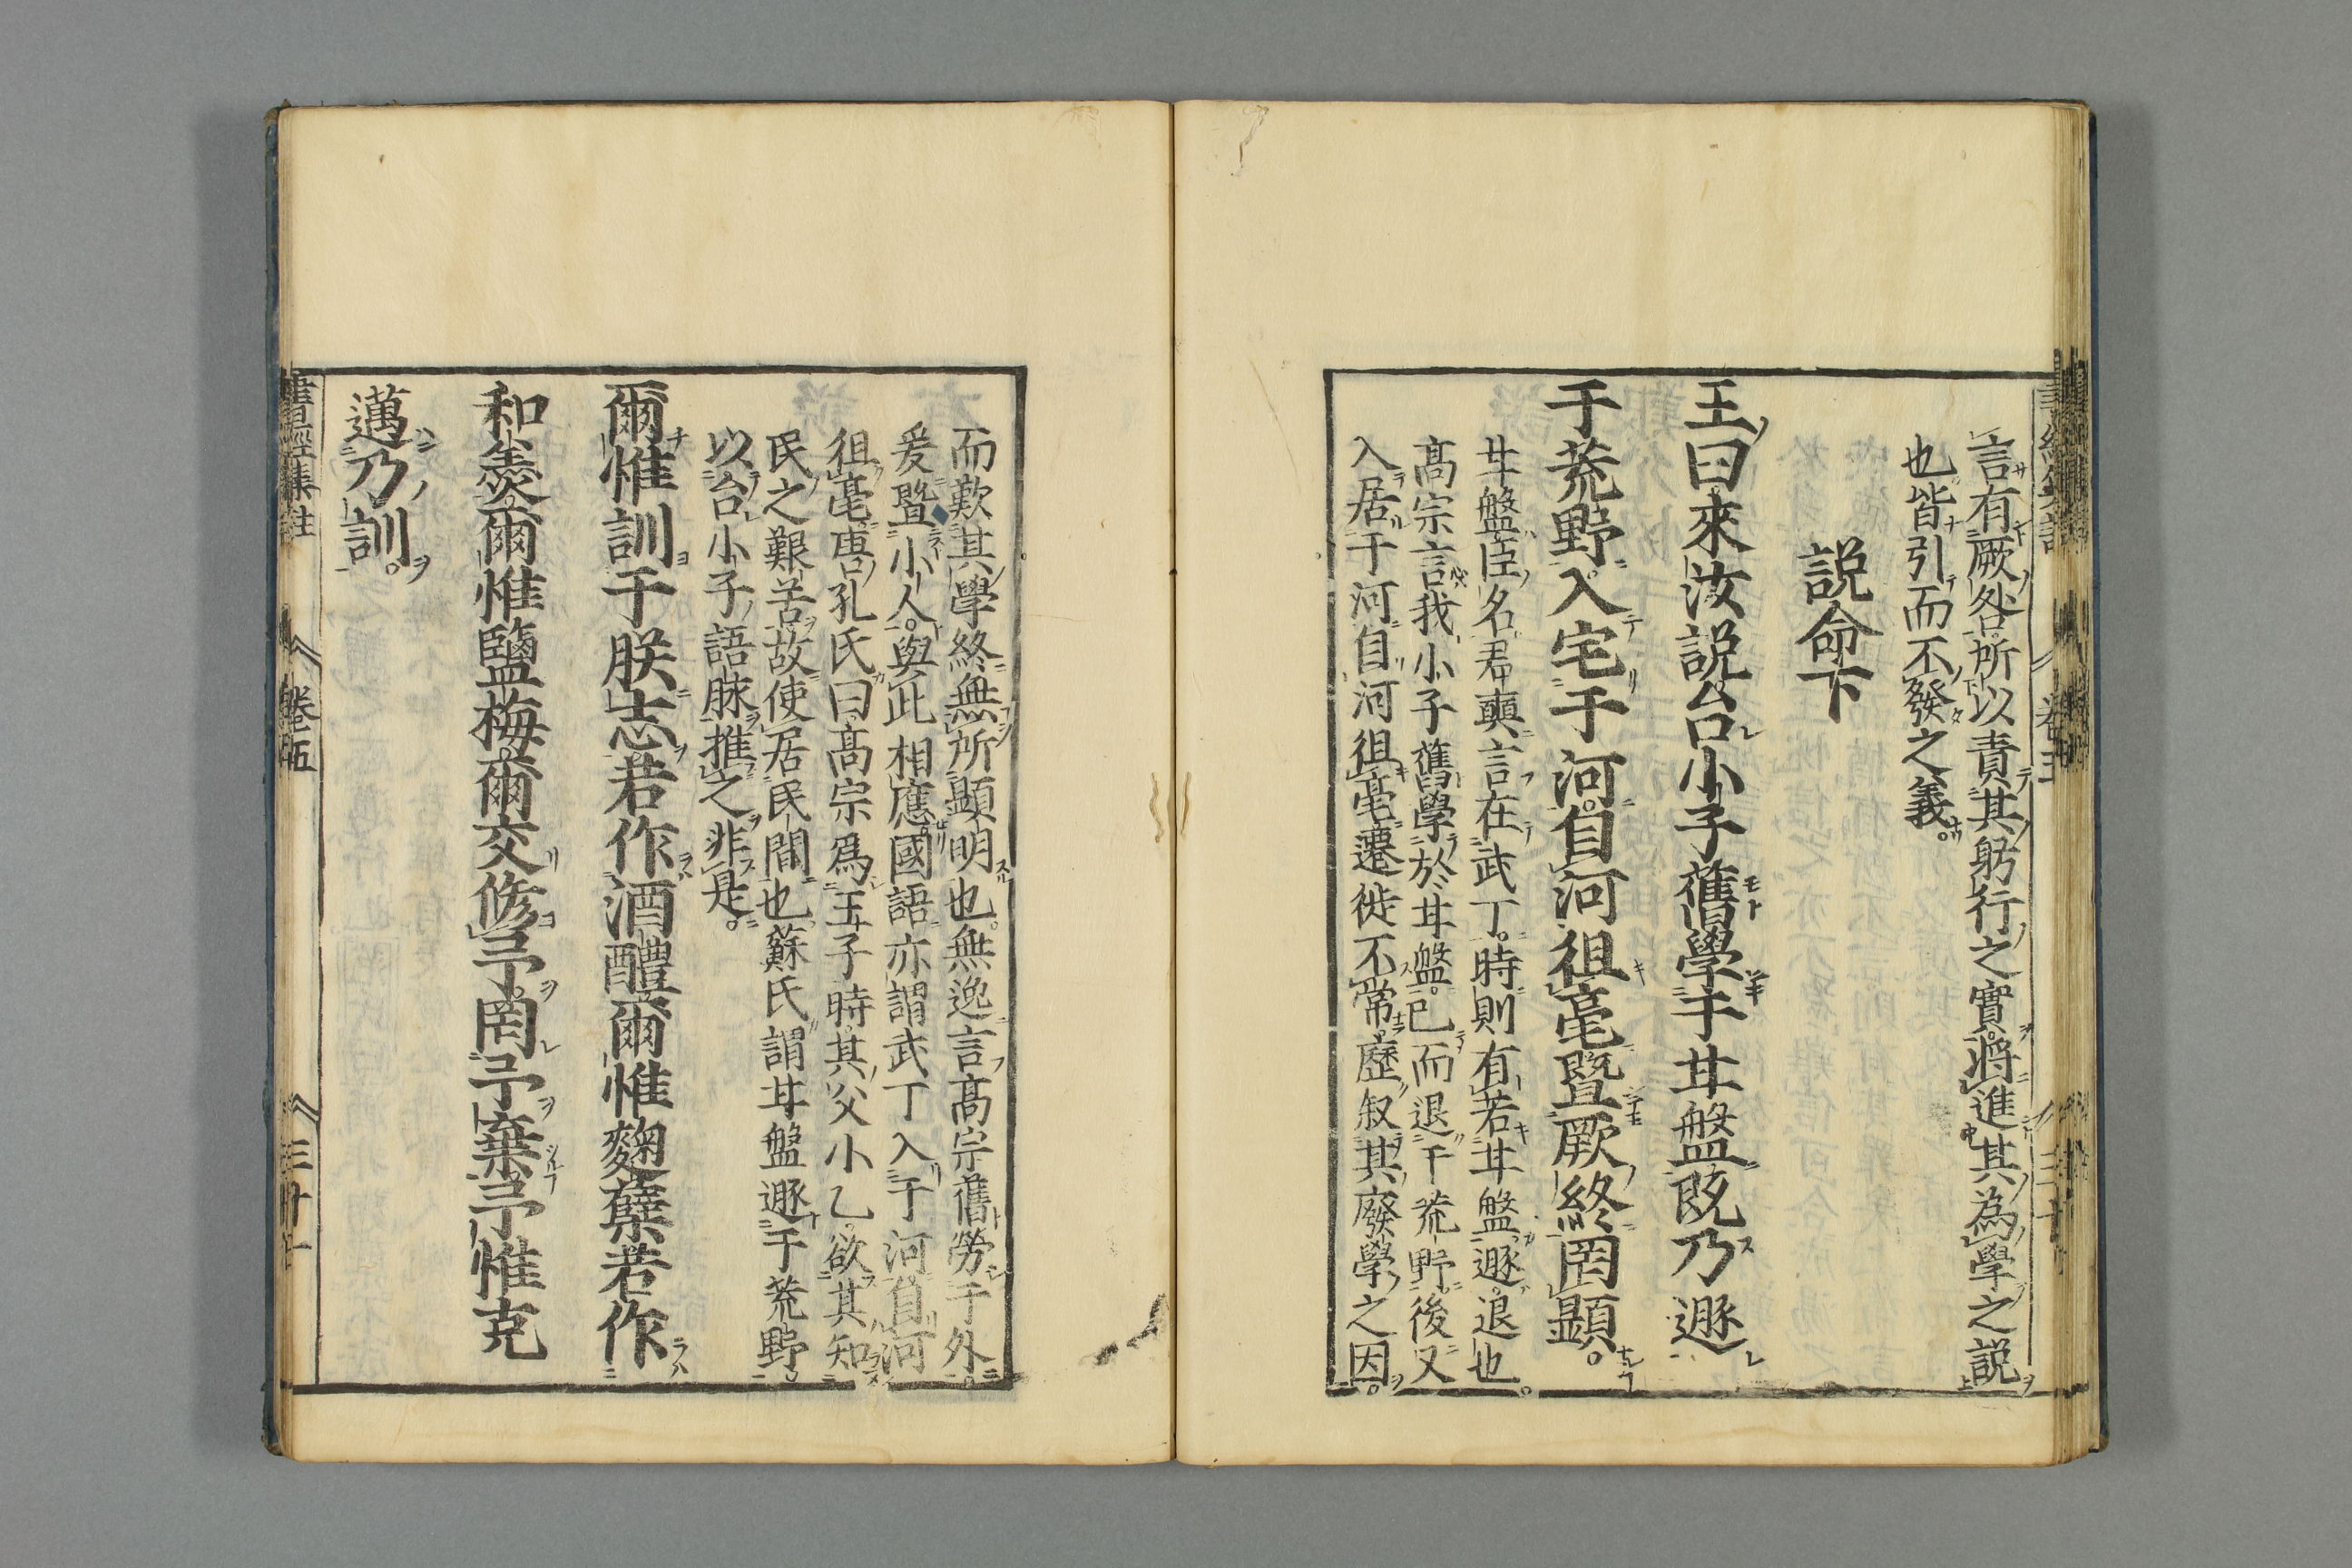 言有厥咎所以責其躬行之實將進其為學之説
也皆引而不發之義
説命下
王曰來汝説台小子舊學于甘盤既乃遯
于荒野入宅于河自河徂亳暨厥終罔顯
甘盤臣名君奭言在武丁時則有若甘盤遯退也
髙宗言我小子舊學於甘盤已而退于荒野後又
入居于河自河徂亳遷徙不常歷叙其廢學之因
而歎其學終無所顯明也無逸言髙宗舊勞于外
爰曁小人與此相應國語亦謂武丁入于河自河
徂亳唐孔氏曰髙宗爲王子時其父小乙欲其知
民之艱苦故使居民間也蘇氏謂甘盤遯于荒野
以台小子語脉推之非是
爾惟訓于朕志若作酒醴爾惟麴糱若作
和羮爾惟鹽梅爾交脩予罔予棄予惟克
邁乃訓
書經集註 卷五